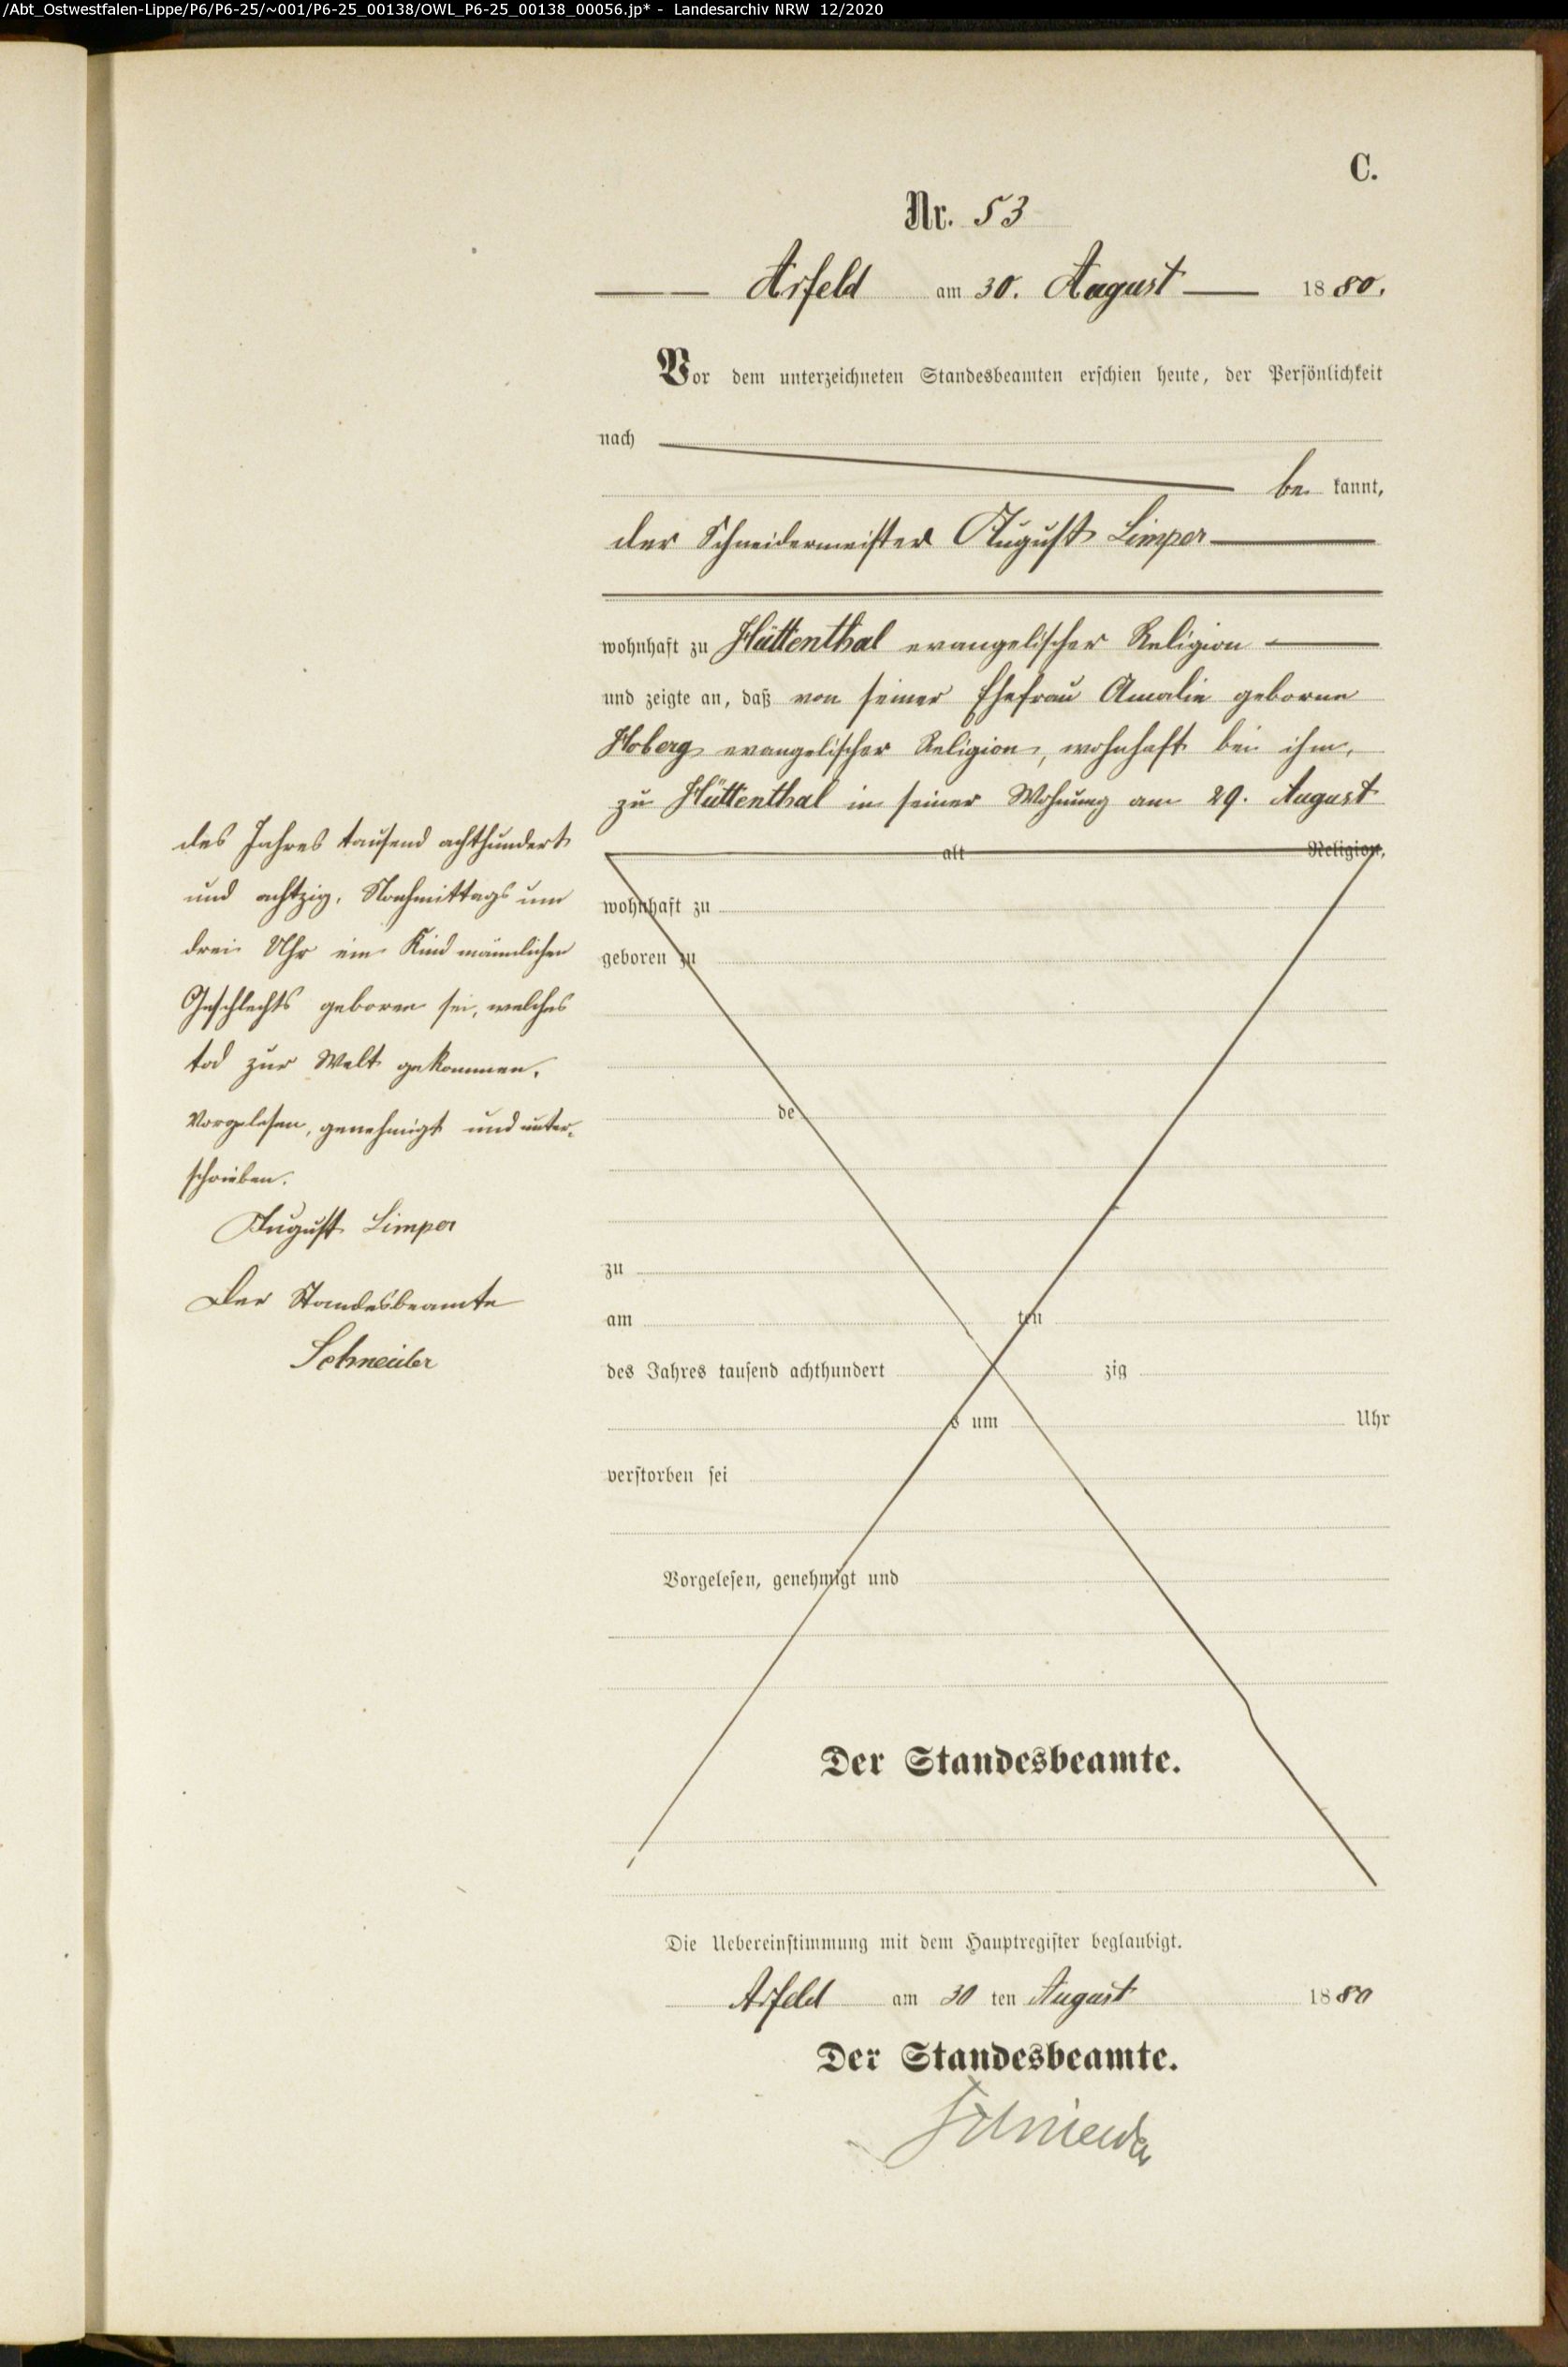 /Abt_Ostwestfalen-Lippe/P6/P6-25/~001/P6-25_00138/OWL_P6-25_00138_00056.jp* - Landesarchiv NRW 12/2020
C.
Nr. 53
Arfeld am 30. August 1880.
Vor dem unterzeichneten Standesbeamten erschien heute, der Persönlichkeit
nach
be kannt,
der Schneidermeister August Limper
wohnhaft zu Hüttenthal evangelischer Religion
und zeigte an, daß von seiner Ehefrau Amalie geborne
Hoberg evangelischer Religion, wohnhaft bei ihm,
zu Hüttenthal in seiner Wohnung am 29. August
des Jahres tausend achthundert
und achtzig, Nachmittags um
drei Uhr ein Kind männlichen
Geschlechts geboren sei, welches
tod zur Welt gekommen.
Vorgelesen, genehmigt und unter-
schrieben.
August Limper
Der Standesbeamte
Schneider
alt Religion,
wohnhaft zu
geboren zu
de
zu
am ten
des Jahres tausend achthundert zig
s um Uhr
verstorben sei
Vorgelesen, genehmigt und
Der Standesbeamte.
Die Uebereinstimmung mit dem Hauptregister beglaubigt.
Arfeld am 30 ten August 1880
Der Standesbeamte.
Schneider